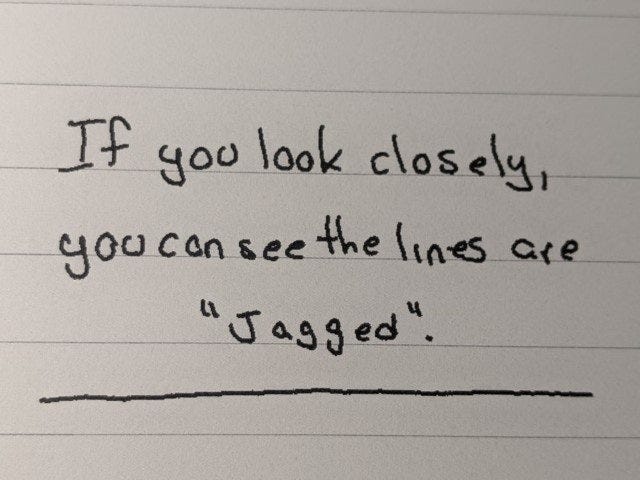 If you look closely,
you can see the lines are
"Jagged".